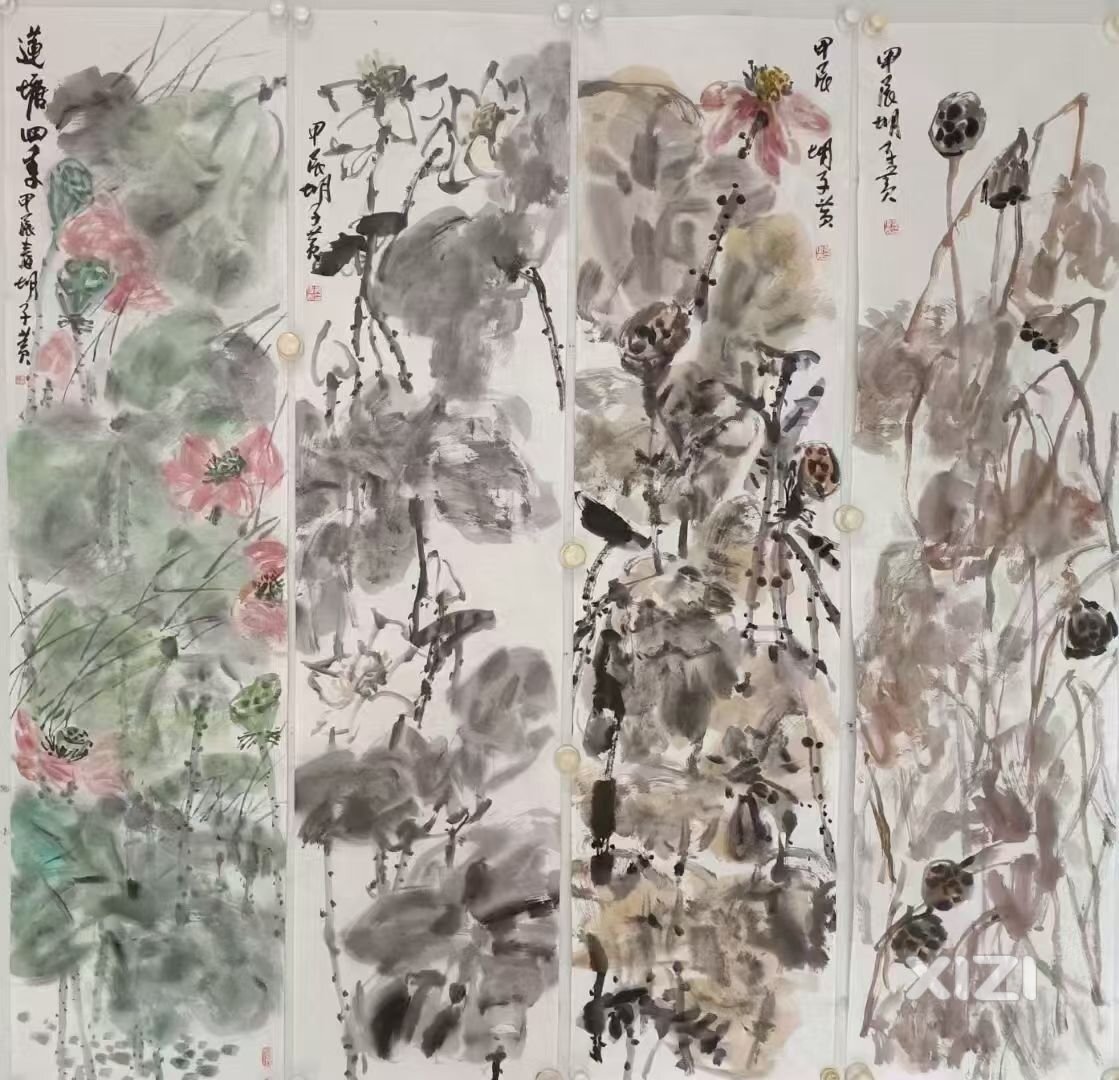 蓮塘四季甲辰春胡子黄
甲辰胡子黄
甲辰
胡子黄
甲辰胡子黄
XIZI